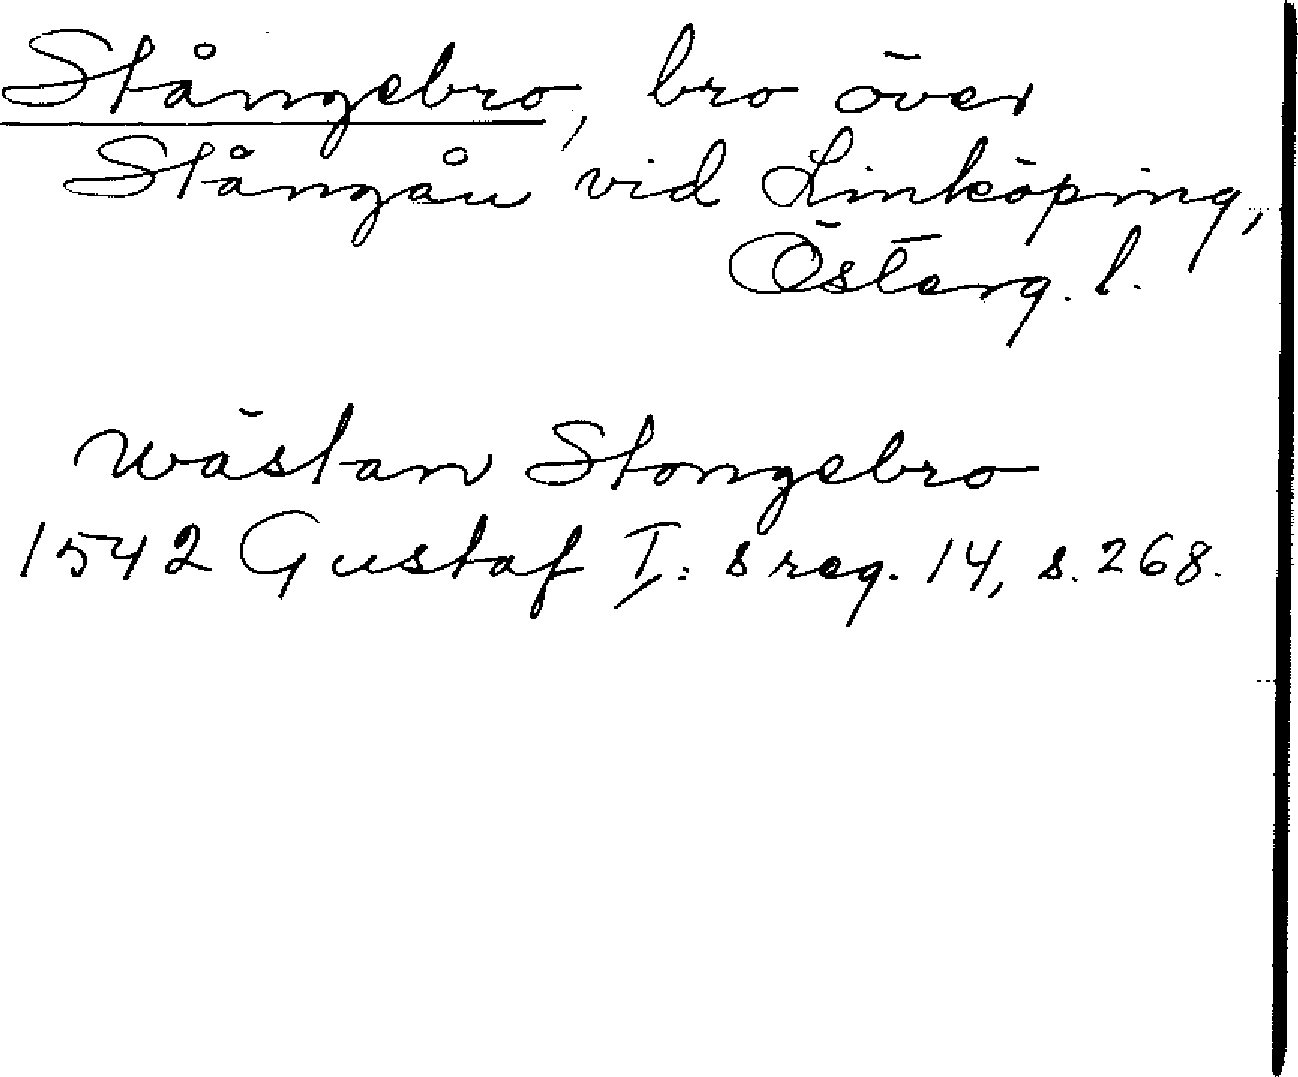 Stångebro, bro över
Stångån vid Linköping,
Österg. l.
wästan Stongebro
1542 Gustaf I: s reg. 14, s. 268.